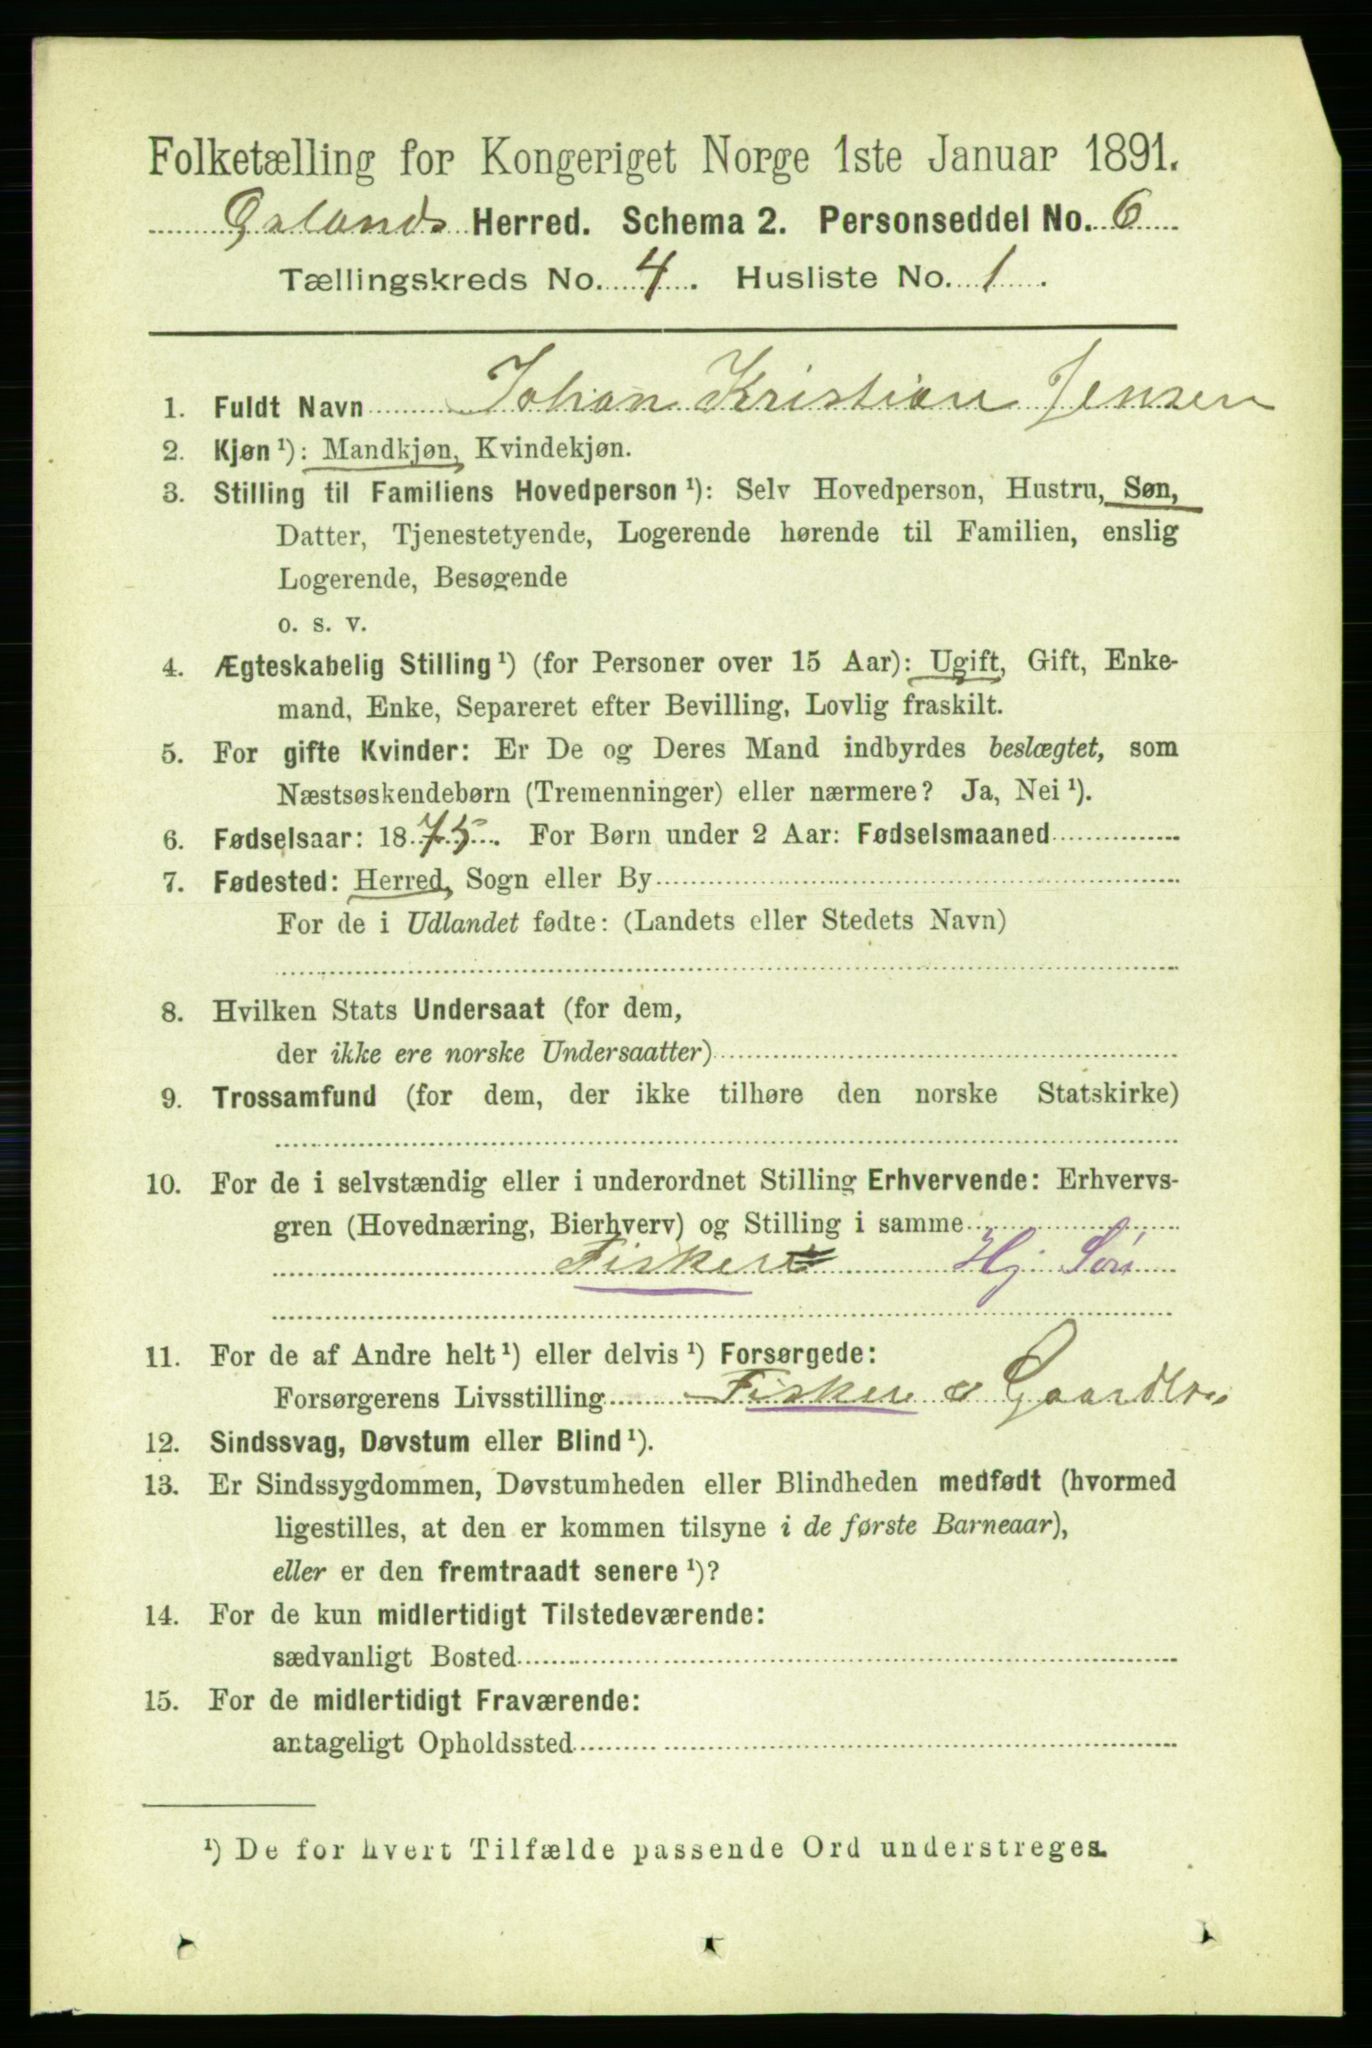 Folketælling for Kongeriget Norge 1ste Januar 1891.
Herred. Schema 2. Personseddel No. 6
Tællingskreds No. 4. Husliste No. 1.
1. Fuldt Navn Johan Kristian Jensen
2. Kjøn ¹): Mandkjøn, Kvindekjøn.
3. Stilling til Familiens Hovedperson ¹): Selv Hovedperson, Hustru, Søn,
Datter, Tjenestetyende, Logerende hørende til Familien, enslig
Logerende, Besøgende
o. s. v.
4. Ægteskabelig Stilling ¹) (for Personer over 15 Aar): Ugift, Gift, Enke-
mand, Enke, Separeret efter Bevilling, Lovlig fraskilt.
5. For gifte Kvinder: Er De og Deres Mand indbyrdes beslægtet, som
Næstsøskendebørn (Tremenninger) eller nærmere? Ja, Nei ¹).
6. Fødselsaar: 1875. For Børn under 2 Aar: Fødselsmaaned
7. Fødested: Herred, Sogn eller By
For de i Udlandet fødte: (Landets eller Stedets Navn)
8. Hvilken Stats Undersaat (for dem,
der ikke ere norske Undersaatter)
9. Trossamfund (for dem, der ikke tilhøre den norske Statskirke)
10. For de i selvstændig eller i underordnet Stilling Erhvervende: Erhvervs-
gren (Hovednæring, Bierhverv) og Stilling i samme
Fisker Hj Søn
11. For de af Andre helt ¹) eller delvis ¹) Forsørgede:
Forsørgerens Livsstilling Fisker
12. Sindssvag, Døvstum eller Blind ¹).
13. Er Sindssygdommen, Døvstumheden eller Blindheden medfødt (hvormed
ligestilles, at den er kommen tilsyne i de første Barneaar),
eller er den fremtraadt senere ¹)?
14. For de kun midlertidigt Tilstedeværende:
sædvanligt Bosted
15. For de midlertidigt Fraværende:
antageligt Opholdssted
¹) De for hvert Tilfælde passende Ord understreges.